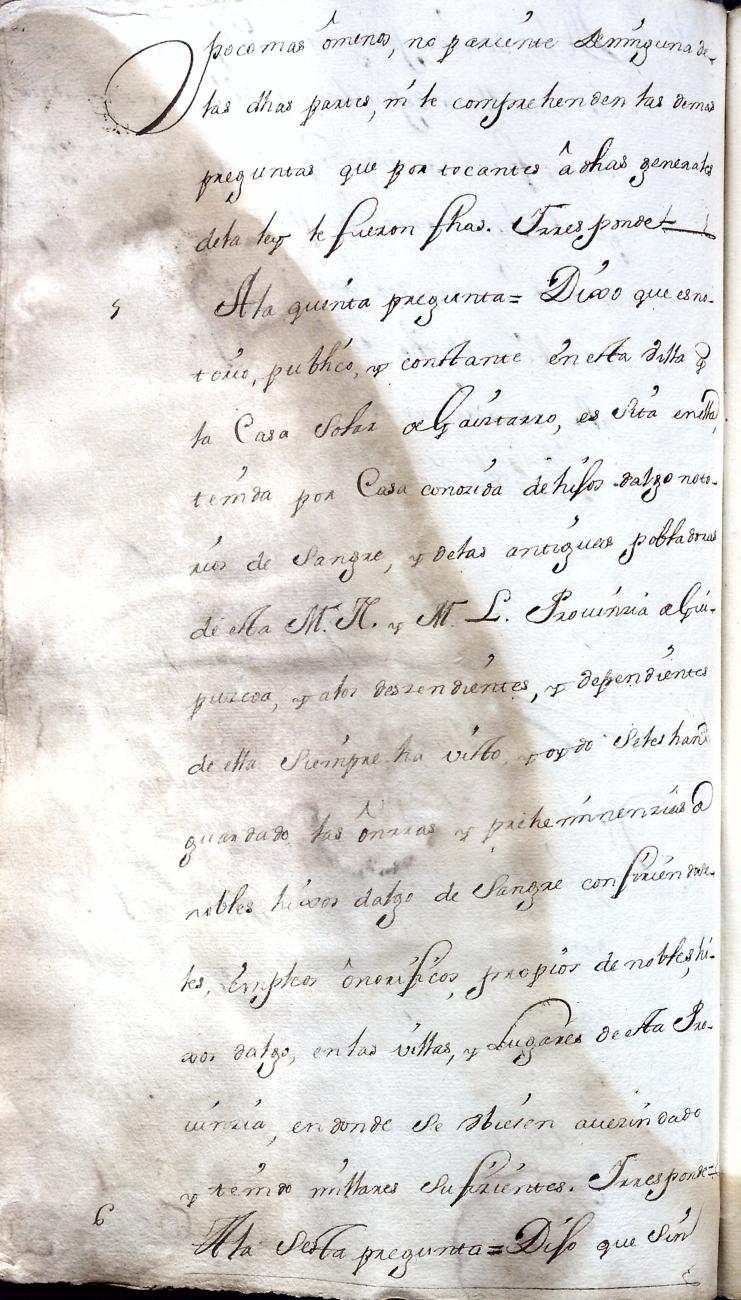 poco mas ômenos, no pariente deninguna de-
las dhas partes, ni le comprehenden las demas
preguntas que por tocantes â dhas generales
dela ley le fueron fhas. Y rresponde=
5 Ala quinta pregunta= Dixo que es no-
torio, publico, y constante en esta villa q
la Casa Solar de Gaiztarro, es Sita enella,
tenida por Casa conozida de hijos dalgo noto-
rios de Sangre, y delas antiguas pobladoras
de esta M. N. y M. L. Provinzia de Gui-
puzcoa, y alos deszendientes, y dependientes
de ella Siempre ha visto, y oydo Seles han
guardado las ônrras y preheminenzias d
nobles hixos dalgo de Sangre confiriendose-
les, Empleos ônorificos, propios de nobles, hi-
xos dalgo, enlas villas, y Lugares de esta Pro-
vinzia, en donde Se vbiesen avezindado
y tenido millares Sufizientes. Y rresponde=
6 Ala Sesta pregunta= Dijo que Sin